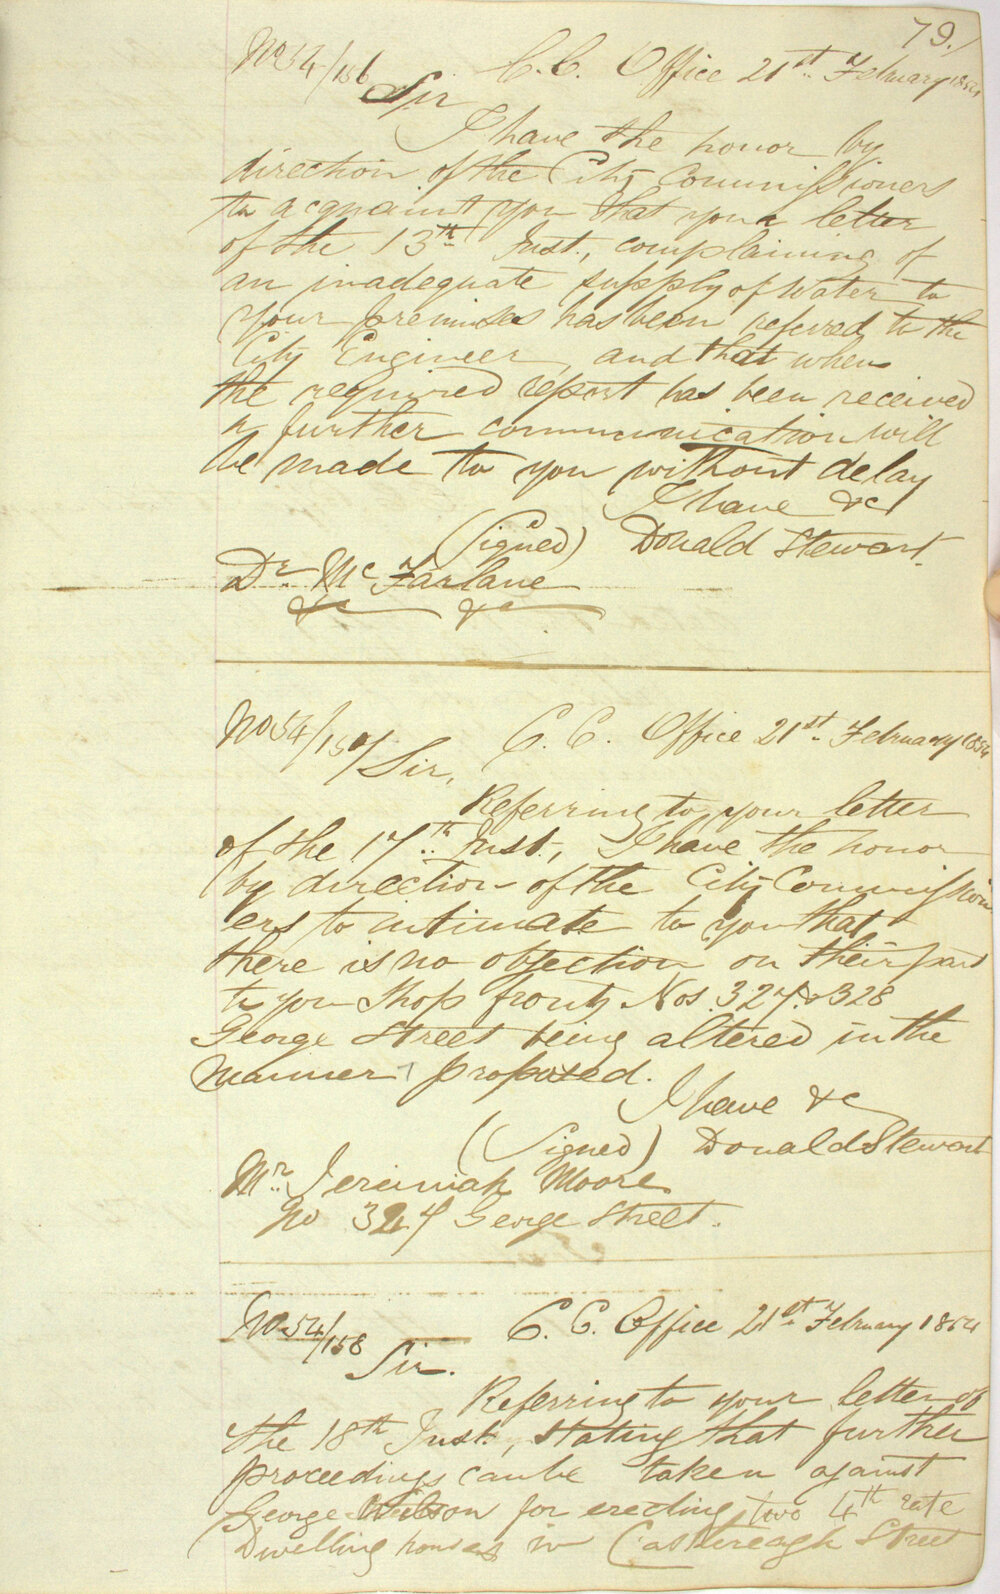 79.
No 54/156 C. C. Office 21st. February 1854
Sir
I have the honor by
direction of the City Commissioners
to acquaint you that your letter
of the 13th Inst., complaining of
an inadequate supply of Water to
your premises has been referred to the
City Engineer, and that when
the required report has been received
a further communication will
be made to you without delay
I have &c
(Signed) Donald Stewart
Dr. McFarlane
&c &c
No 54/157 C. C. Office 21st. February 1854
Sir,
Referring to your letter
of the 17th. Inst., I have the honor
by direction of the City Commission
ers to intimate to you that
there is no objection on their part
to you Shop fronts Nos. 327 & 328
George Street being altered in the
manner proposed.
I have &c
(Signed) Donald Stewart
Mr. Jeremiah Moore
No 327 George Street.
No 54/158 C. C. Office 21st February 1854
Sir.
Referring to your letter of
the 18th Inst., stating that further
proceedings can be taken against
George Wilson for erecting two 4th rate
Dwelling houses in Castlereagh Street